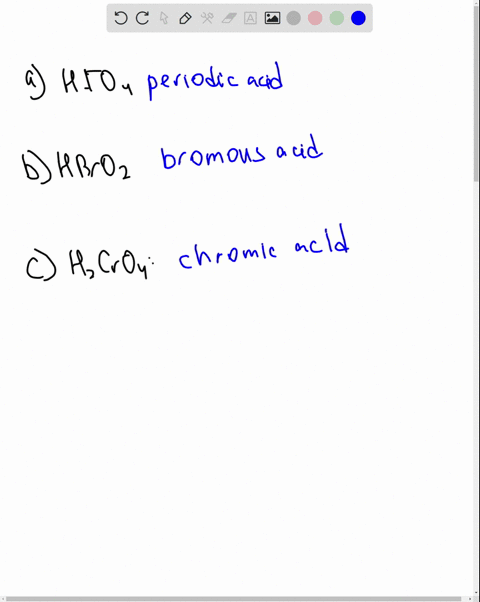 a) HIO4 periodic acid
b) HBrO2 bromous acid
c) H2CrO4: chromic acid